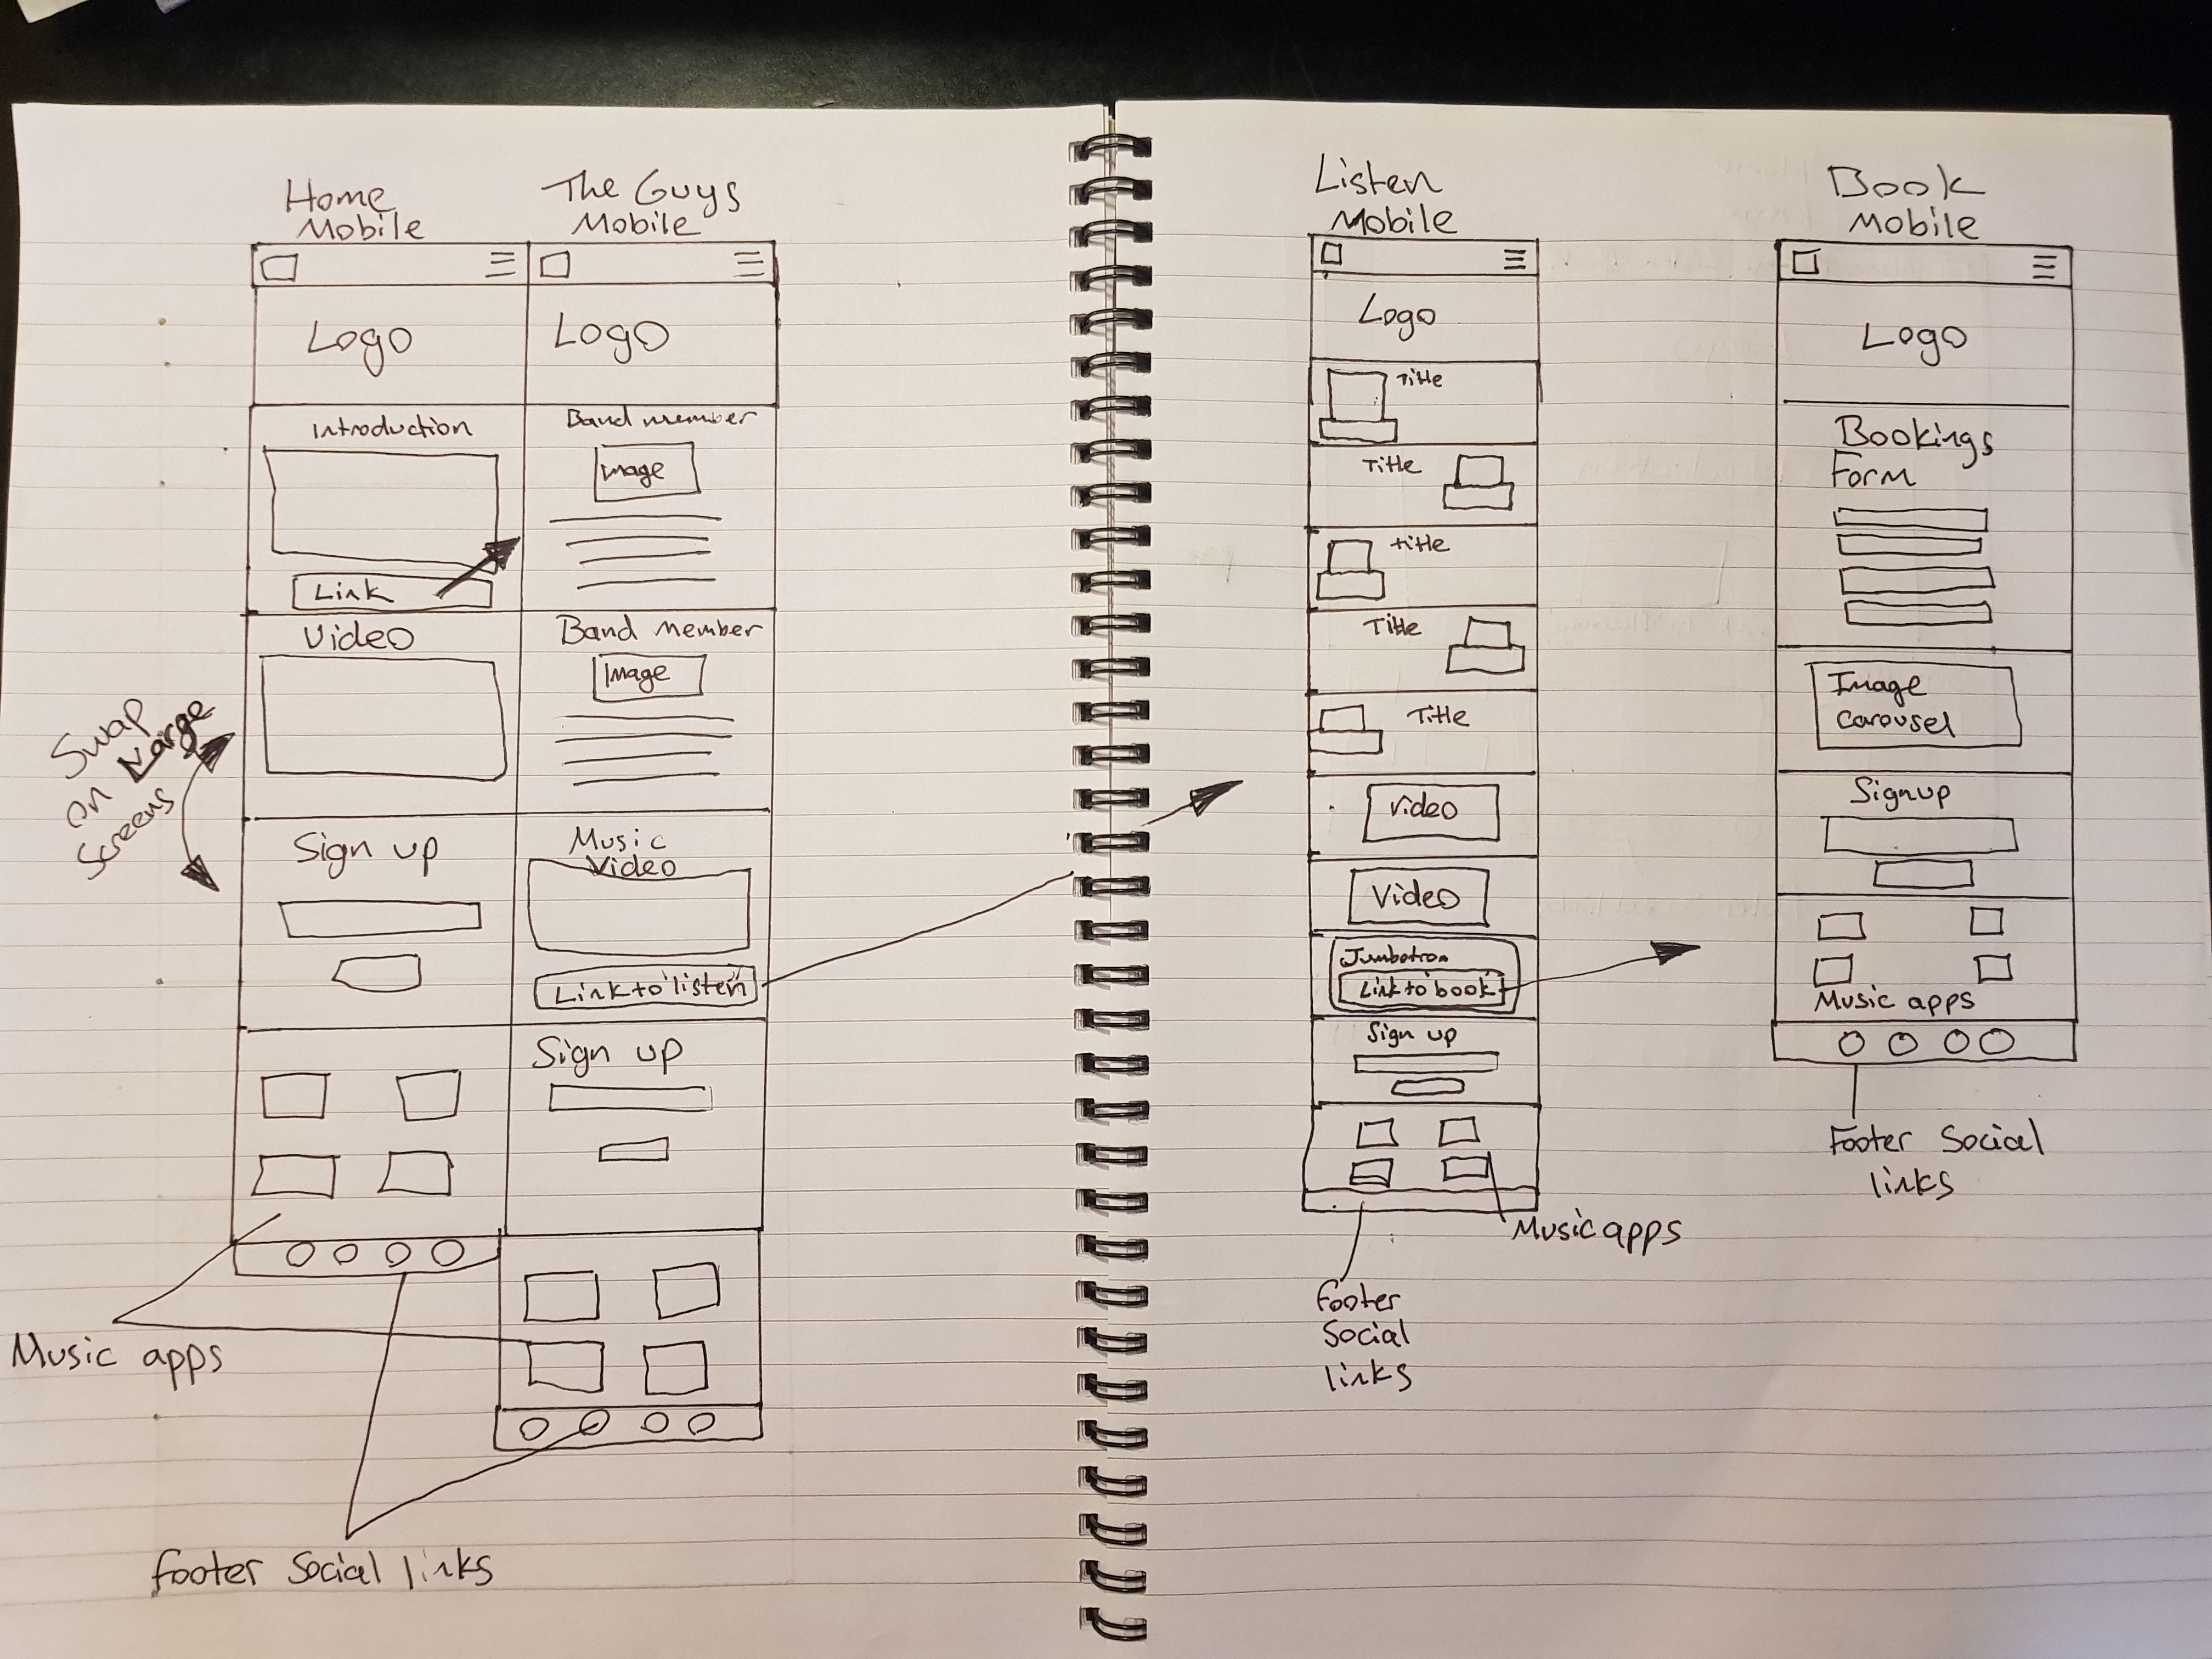 Home
Mobile
Logo
Introduction
Link
Video
Swap
on Large
screens
Sign up
Music apps
footer social links
The Guys
Mobile
Logo
Band member
Image
Band member
Image
Music
Video
Link to listen
Sign up
Listen
Mobile
Logo
Title
Title
Title
Title
Title
Video
Video
Jumbotron
Link to book
Sign up
Music apps
footer
Social
links
Book
Mobile
Logo
Bookings
Form
Image
carousel
Signup
Music apps
Footer Social
links